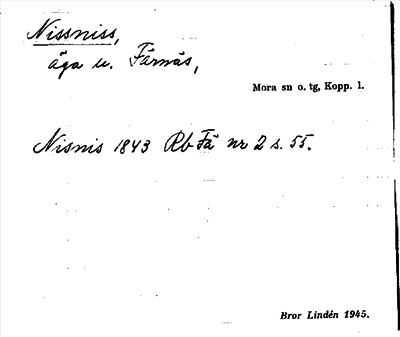 Nissniss,
äga u. Färnäs,
Mora sn o. tg, Kopp. l.
Nisnis 1843 Rb Fä nr 2 s. 55.
Bror Lindén 1945.